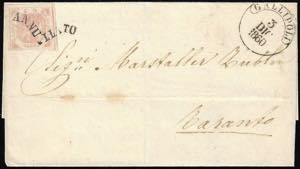 ANNULLATO
GALLIPOLI
3
DIC
1860
Sig.ri Marstaller
Taranto